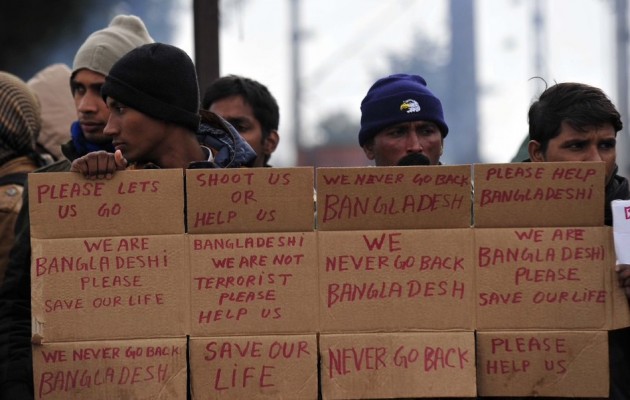 PLEASE LETS
US GO
SHOOT US
OR
HELP US
WE NEVER GO BACK
BANGLADESH
PLEASE HELP
BANGLADESHI
WE ARE
BANGLADESHI
PLEASE
SAVE OUR LIFE
BANGLADESHI
WE ARE NOT
TERRORIST
PLEASE
HELP US
WE
NEVER GO BACK
BANGLADESH
WE ARE
BANGLADESHI
PLEASE
SAVE OUR LIFE
WE NEVER GO BACK
BANGLADESH
SAVE OUR
LIFE
NEVER GO BACK
PLEASE
HELP US